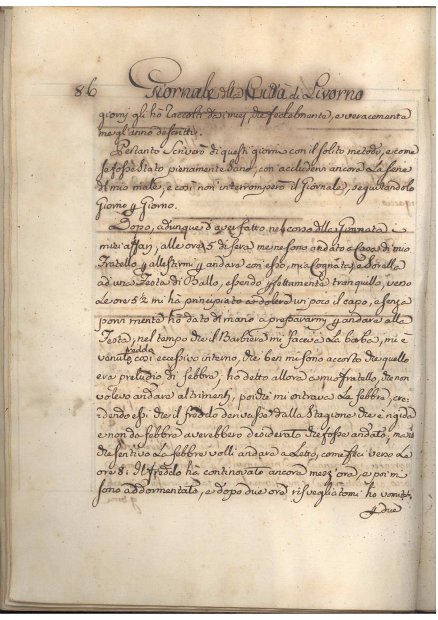 86 Giornale della Città di Livorno
giorni gli hò raccolti da i miei, che fedelmente, e veracemente
me gl'anno descritti.
Pertanto scriverò di questi giorni con il solito metodo, e come
se fosse stato pienamente sano, con accludervi ancora la serie
di mio male, e così non interromperò il Giornale, seguitandolo
Giorno p Giorno.
Dopo, adunque d'aver fatto nel corso della Giornata i
miei affari, alle ore 5 di sera me ne sono andato a Casa di mio
Fratello p allestirmi p andare con esso, mia Cognata, e Sorella
ad una Festa di Ballo, essendo p soltamente tranquillo, verso
le ore 5½ mi hà principiato a dolere un poco il capo, e senza
porvi mente hò dato di mano a prepararmi p andare alla
Festa, nel tempo che il Barbiere mi faceva la barba, mi è
venuto freddo così eccessivo interno, che ben mi sono accorto che quello
era preludio di febbre, hò detto allora a mio fratello, che non
volevo andare altrimenti, poiche mi entrava la febbre, cre-
dendo essi che il freddo derivasse dalla Stagione che è rigida
e non da febbre averebbero desiderato che fosse andato, ma io
che sentivo la febbre volli andare a Letto, come feci verso le
ore 8: il freddo hà continovato ancora mezz'ora, e poi mi
sono addormentato, e dopo due ore risvegliatomi hò
p due